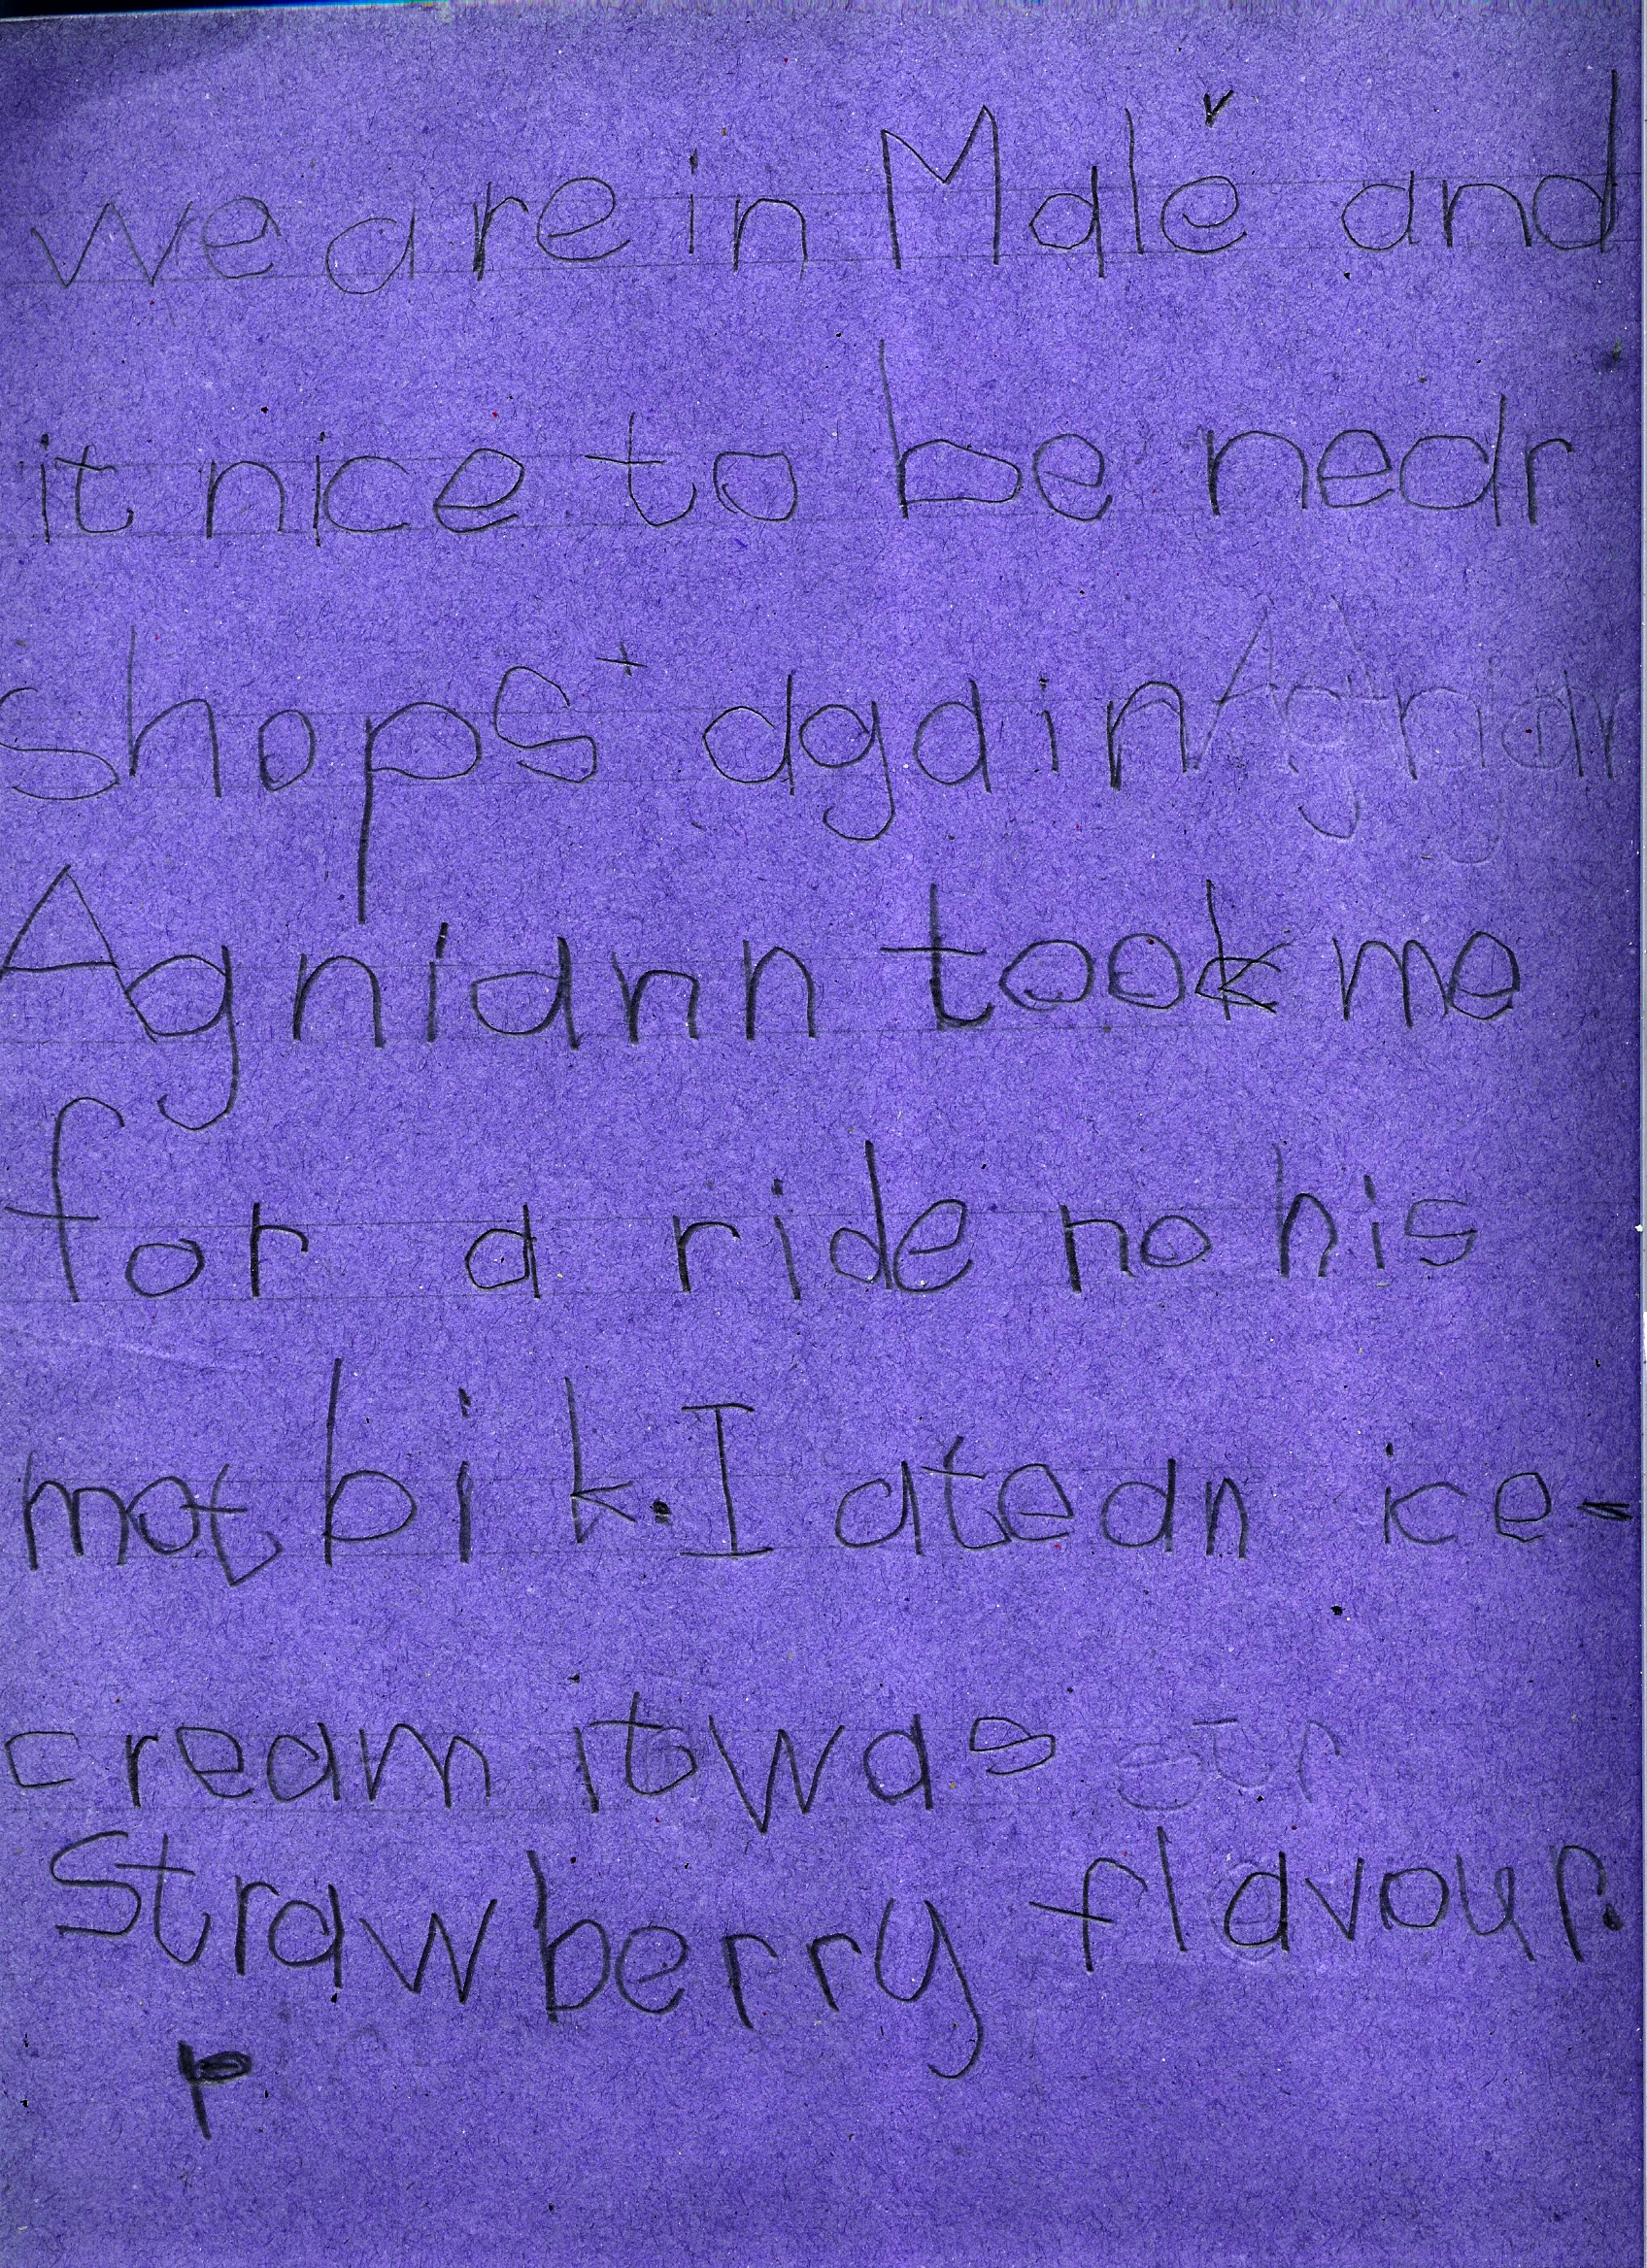 we are in Malé and
it nice to be near
shops again
Agniann took me
for a ride no his
mot bik. I ate an ice-
cream it was
Strawberry flavour.
p